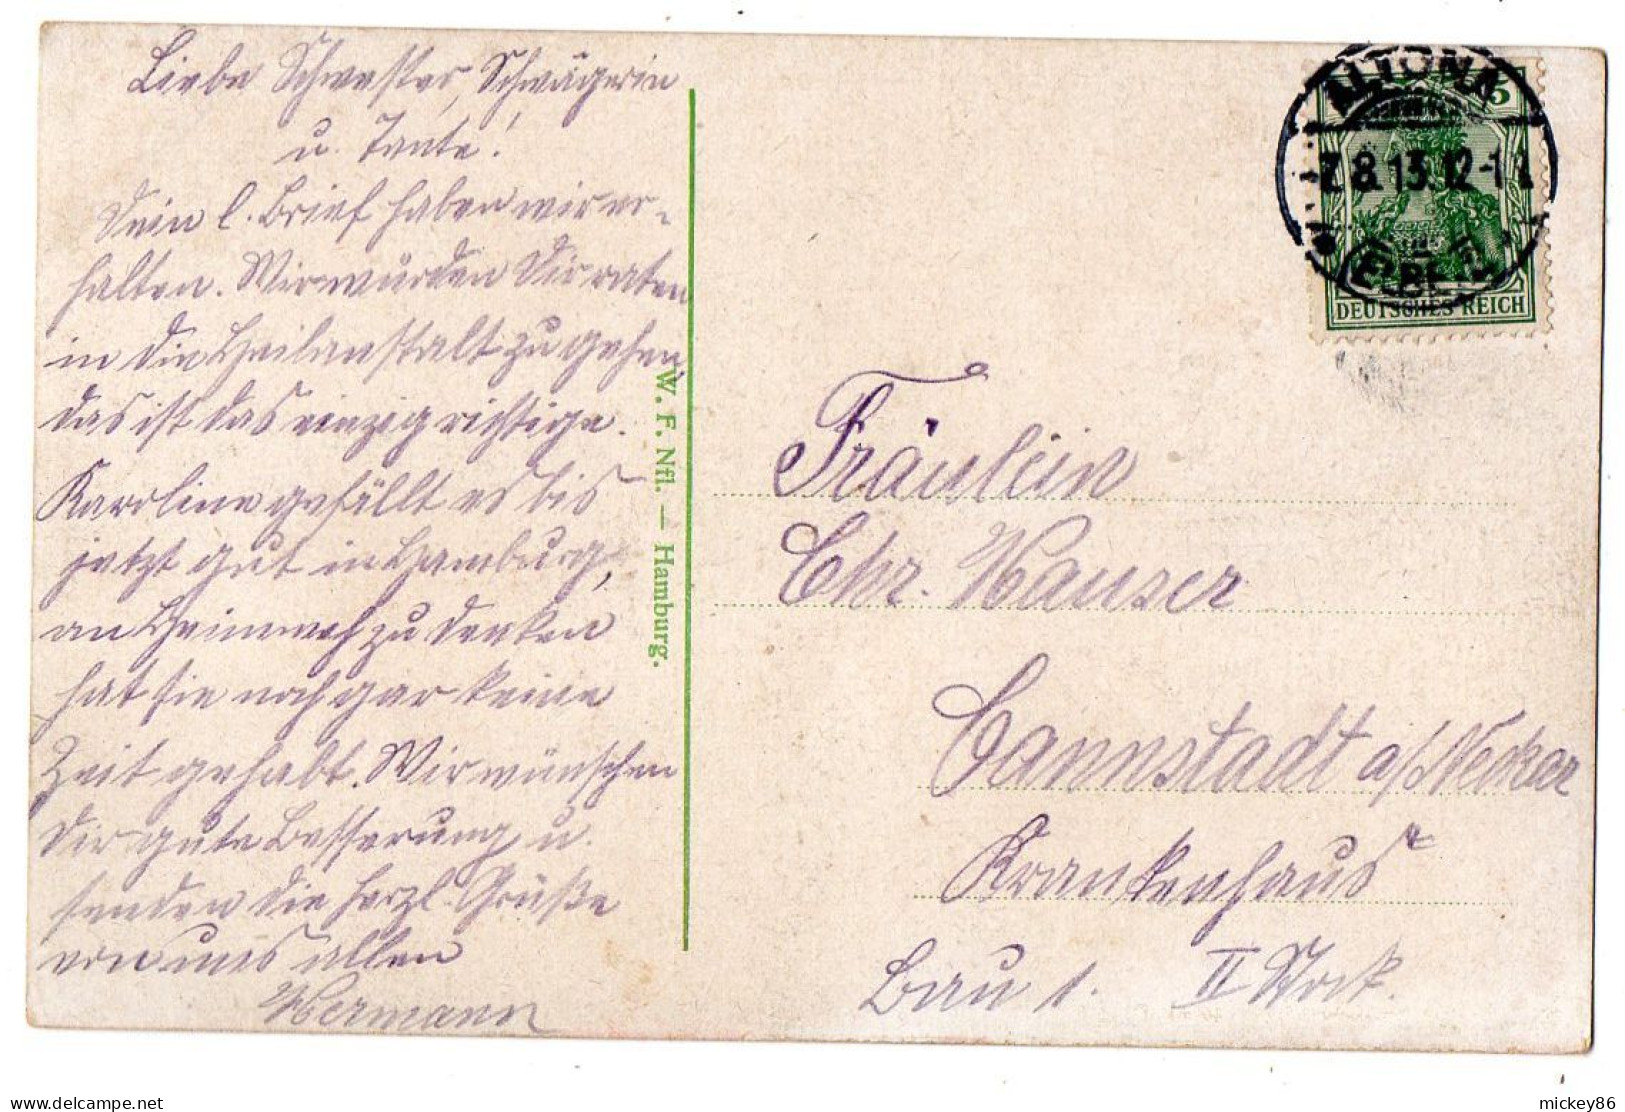 Liebe Schwester, Schwägerin
u. Tante!
Dein l. Brief haben wir er-
halten. Wir würden Dir raten
in die Heilanstalt zu gehen
das ist das einzig richtige.
Karoline gefällt es bis
jetzt gut in Hamburg,
an Heimweh zu denken
hat sie noch gar keine
Zeit gehabt. Wir wünschen
Dir gute Besserung u.
senden die herzl. Grüße
von uns allen
Hermann
W. F. Nfl. — Hamburg.
ALTONA
7.8.13.12-1
(ELBE)
5
DEUTSCHES REICH
Fräulein
Chr. Hauser
Cannstadt a/Neckar
Krankenhaus
Bau 1. II Stock.
mickey86